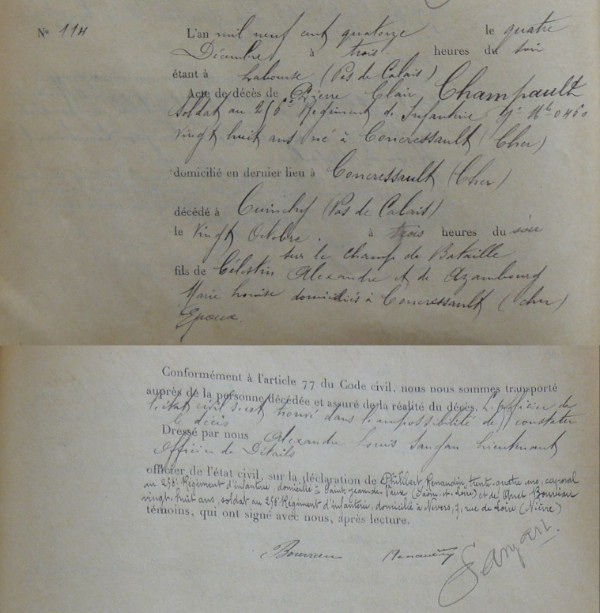 N° 114
L'an mil neuf cent quatorze le quatre
Décembre à trois heures du soir
étant à Labourse (Pas de Calais)
Acte de décès de Pierre Clair Champault
Soldat au 256e Régiment de Infanterie
vingt huit ans né à Concressault (Cher)
domicilié en dernier lieu à Concressault (Cher)
décédé à Cuinchy (Pas de Calais)
le vingt Octobre. à trois heures du soir
sur le champ de Bataille
fils de Célestin Alexandre et de Azambourg
Marie Louise domiciliés à Concressault (Cher)
Epoux
Conformément à l'article 77 du Code civil, nous nous sommes transporté
auprès de la personne décédée et assuré de la réalité du décès. L'officier de
l'état civil s'est trouvé dans l'impossibilité de constater
le décès
Dressé par nous Alexandre Louis Lieutenant
Officier de Détails
officier de l'état civil, sur la déclaration de Philibert, Renaudin, trente-quatre ans, caporal
au 256e Régiment d'infanterie domicilié à Saint-Jean-de-Vaux (Saône-et-Loire) et de Bourreau
vingt-huit ans, soldat au 256e Régiment d'infanterie, domicilié à Nevers, 7, rue de Loire (Nièvre)
témoins, qui ont signé avec nous, après lecture.